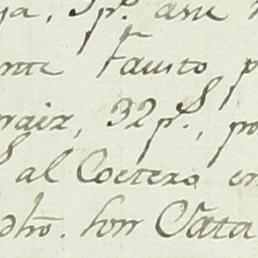 ya, 3p.^s asse
nte Fausto p
raiz, 32p.^s, po
al Coetero en
dho. hon Cata